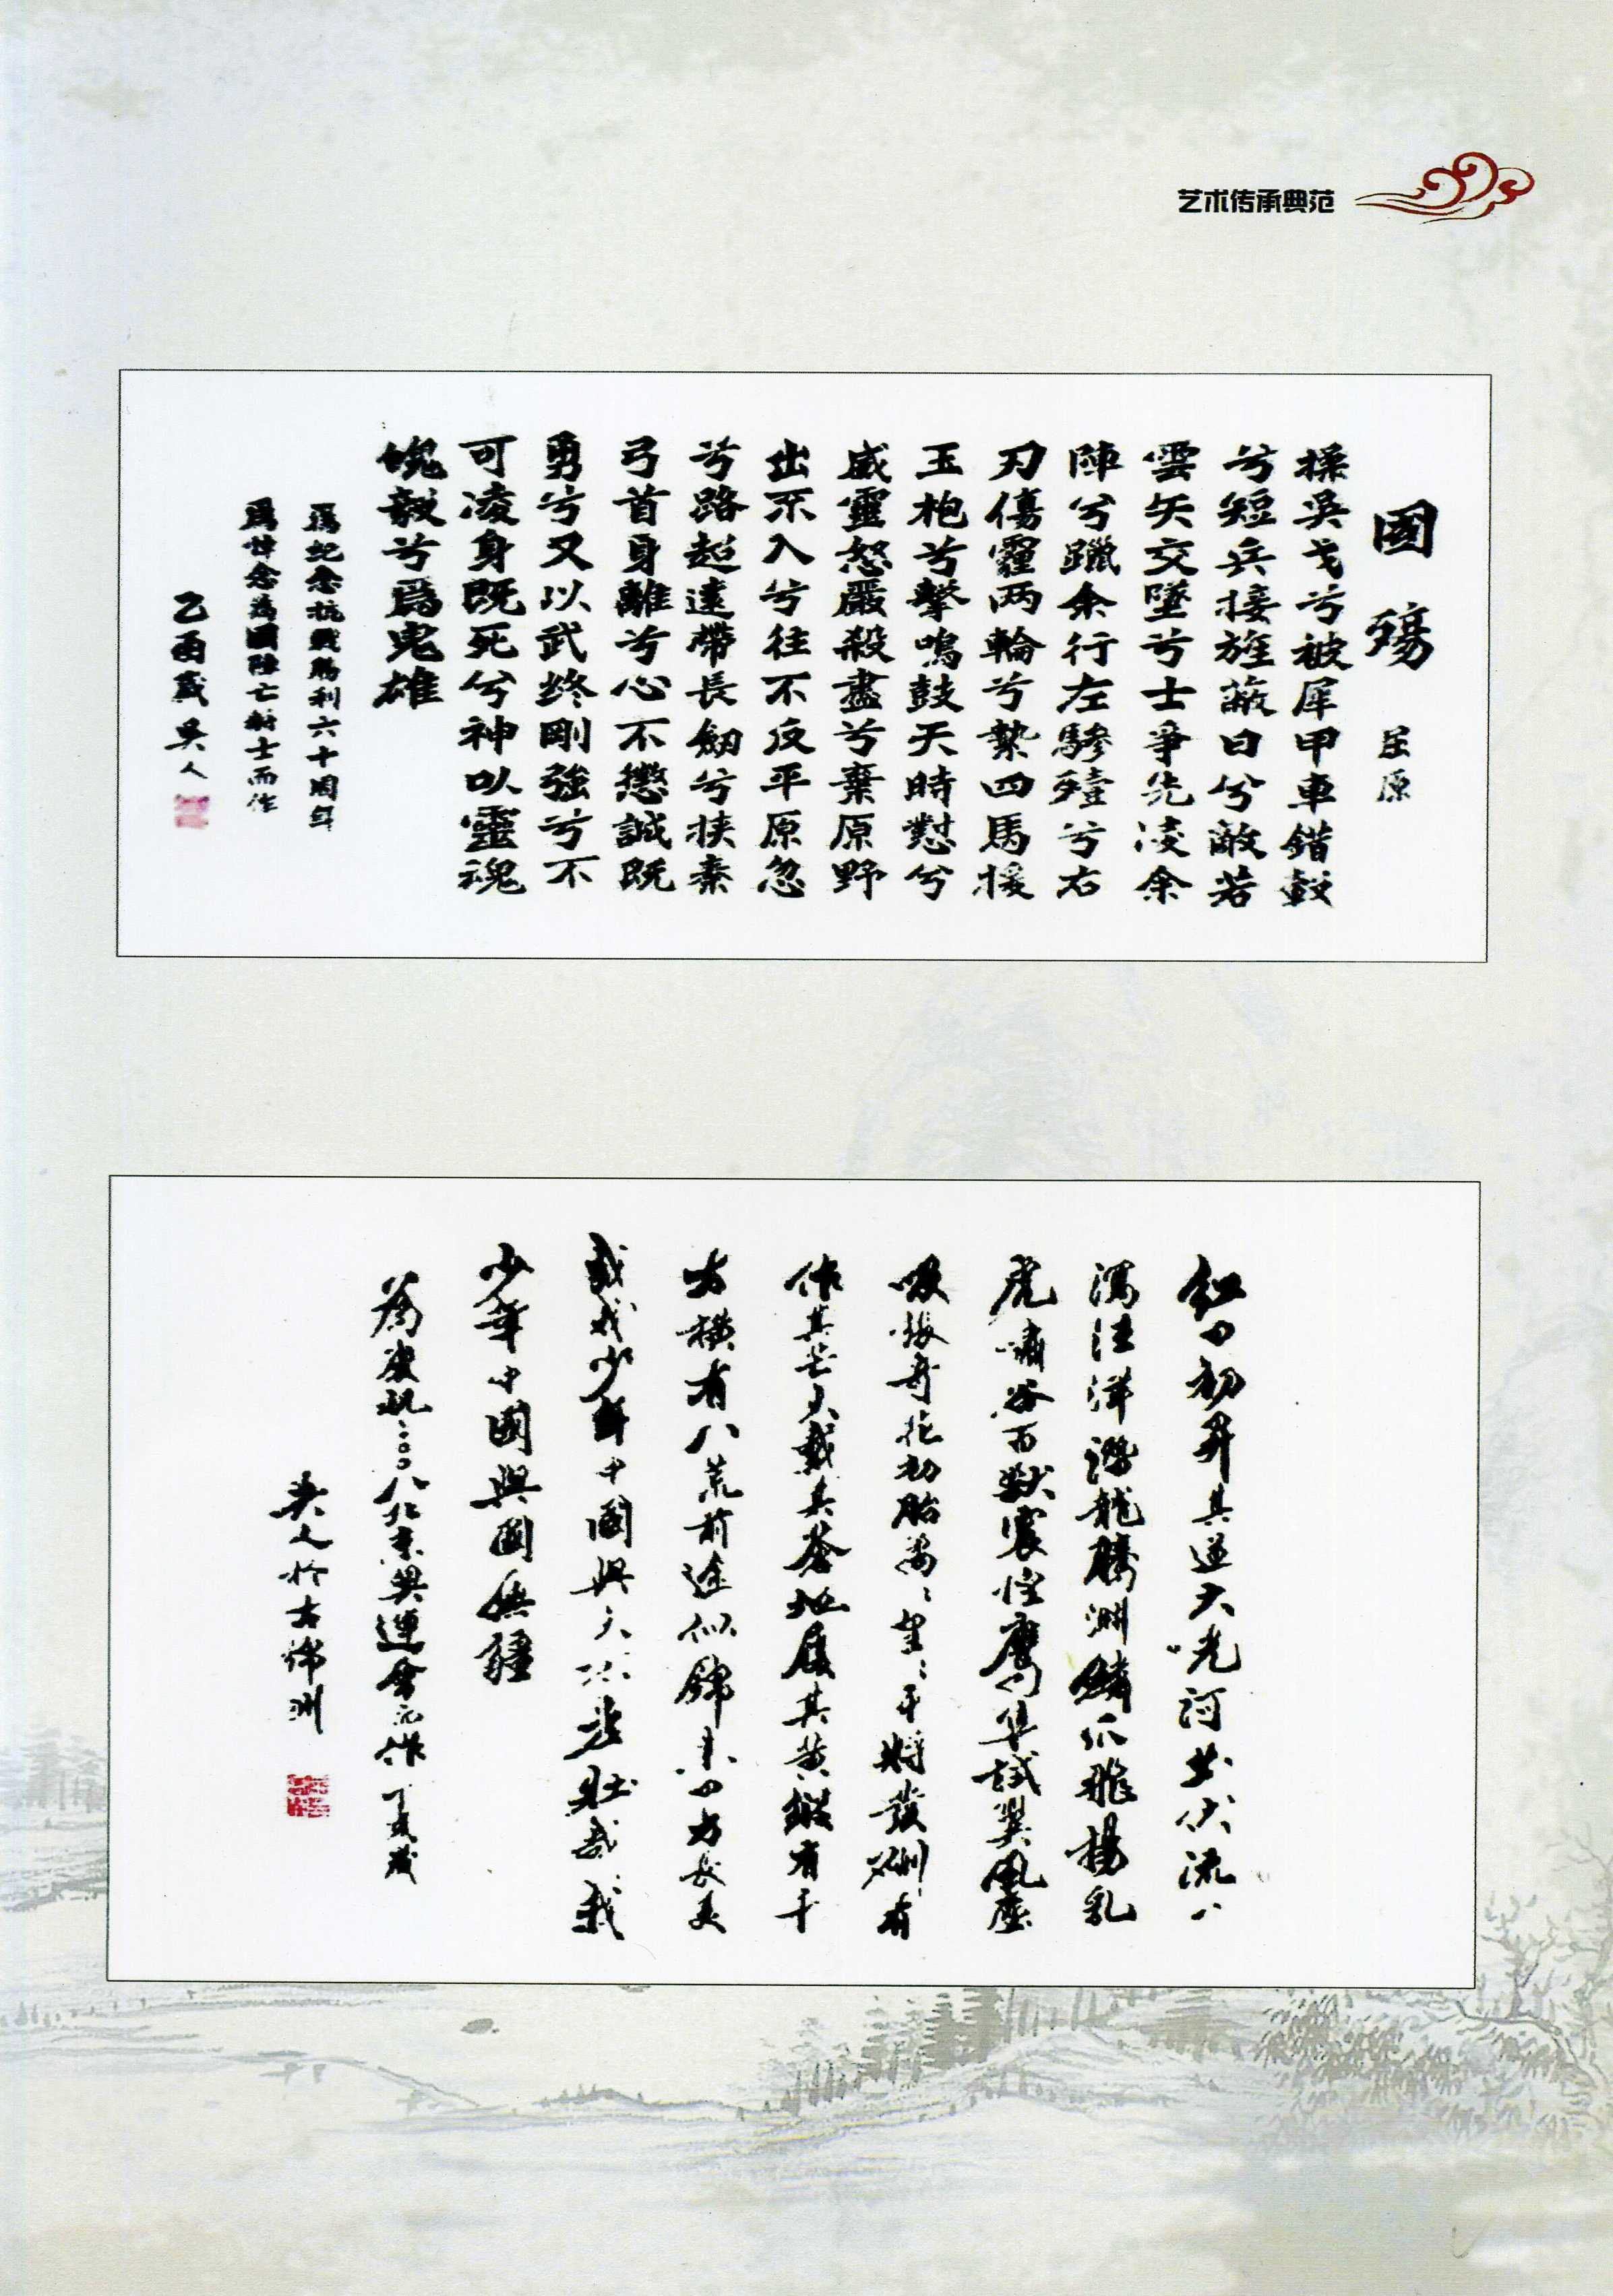 艺术传承典范
國殤 屈原
操吳戈兮被犀甲車錯轂
兮短兵接旌蔽日兮敵若
雲矢交墜兮士爭先凌余
陣兮躐余行左驂殪兮右
刃傷霾兩輪兮縶四馬援
玉枹兮擊鳴鼓天時懟兮
威靈怒嚴殺盡兮棄原野
出不入兮往不反平原忽
兮路超遠帶長劍兮挾秦
弓首身離兮心不懲誠既
勇兮又以武終剛強兮不
可凌身既死兮神以靈魂
魄毅兮爲鬼雄
爲紀念抗戰勝利六十周年
爲悼念為國陣亡將士而作
乙酉歲 吳人
紅日初昇其道大光河出伏流一
瀉汪洋潛龍騰淵鱗爪飛揚乳
虎嘯谷百獸震惶鷹隼試翼風塵
吸張奇花初胎矞矞皇皇干將發硎有
作其芒天戴其蒼地履其黃縱有千
古橫有八荒前途似錦來日方長美
哉我少年中國與天不老壯哉我
少年中國與國無疆
為慶祝二〇〇八北京奧運會而作 丁亥歲
吳人於古錦州